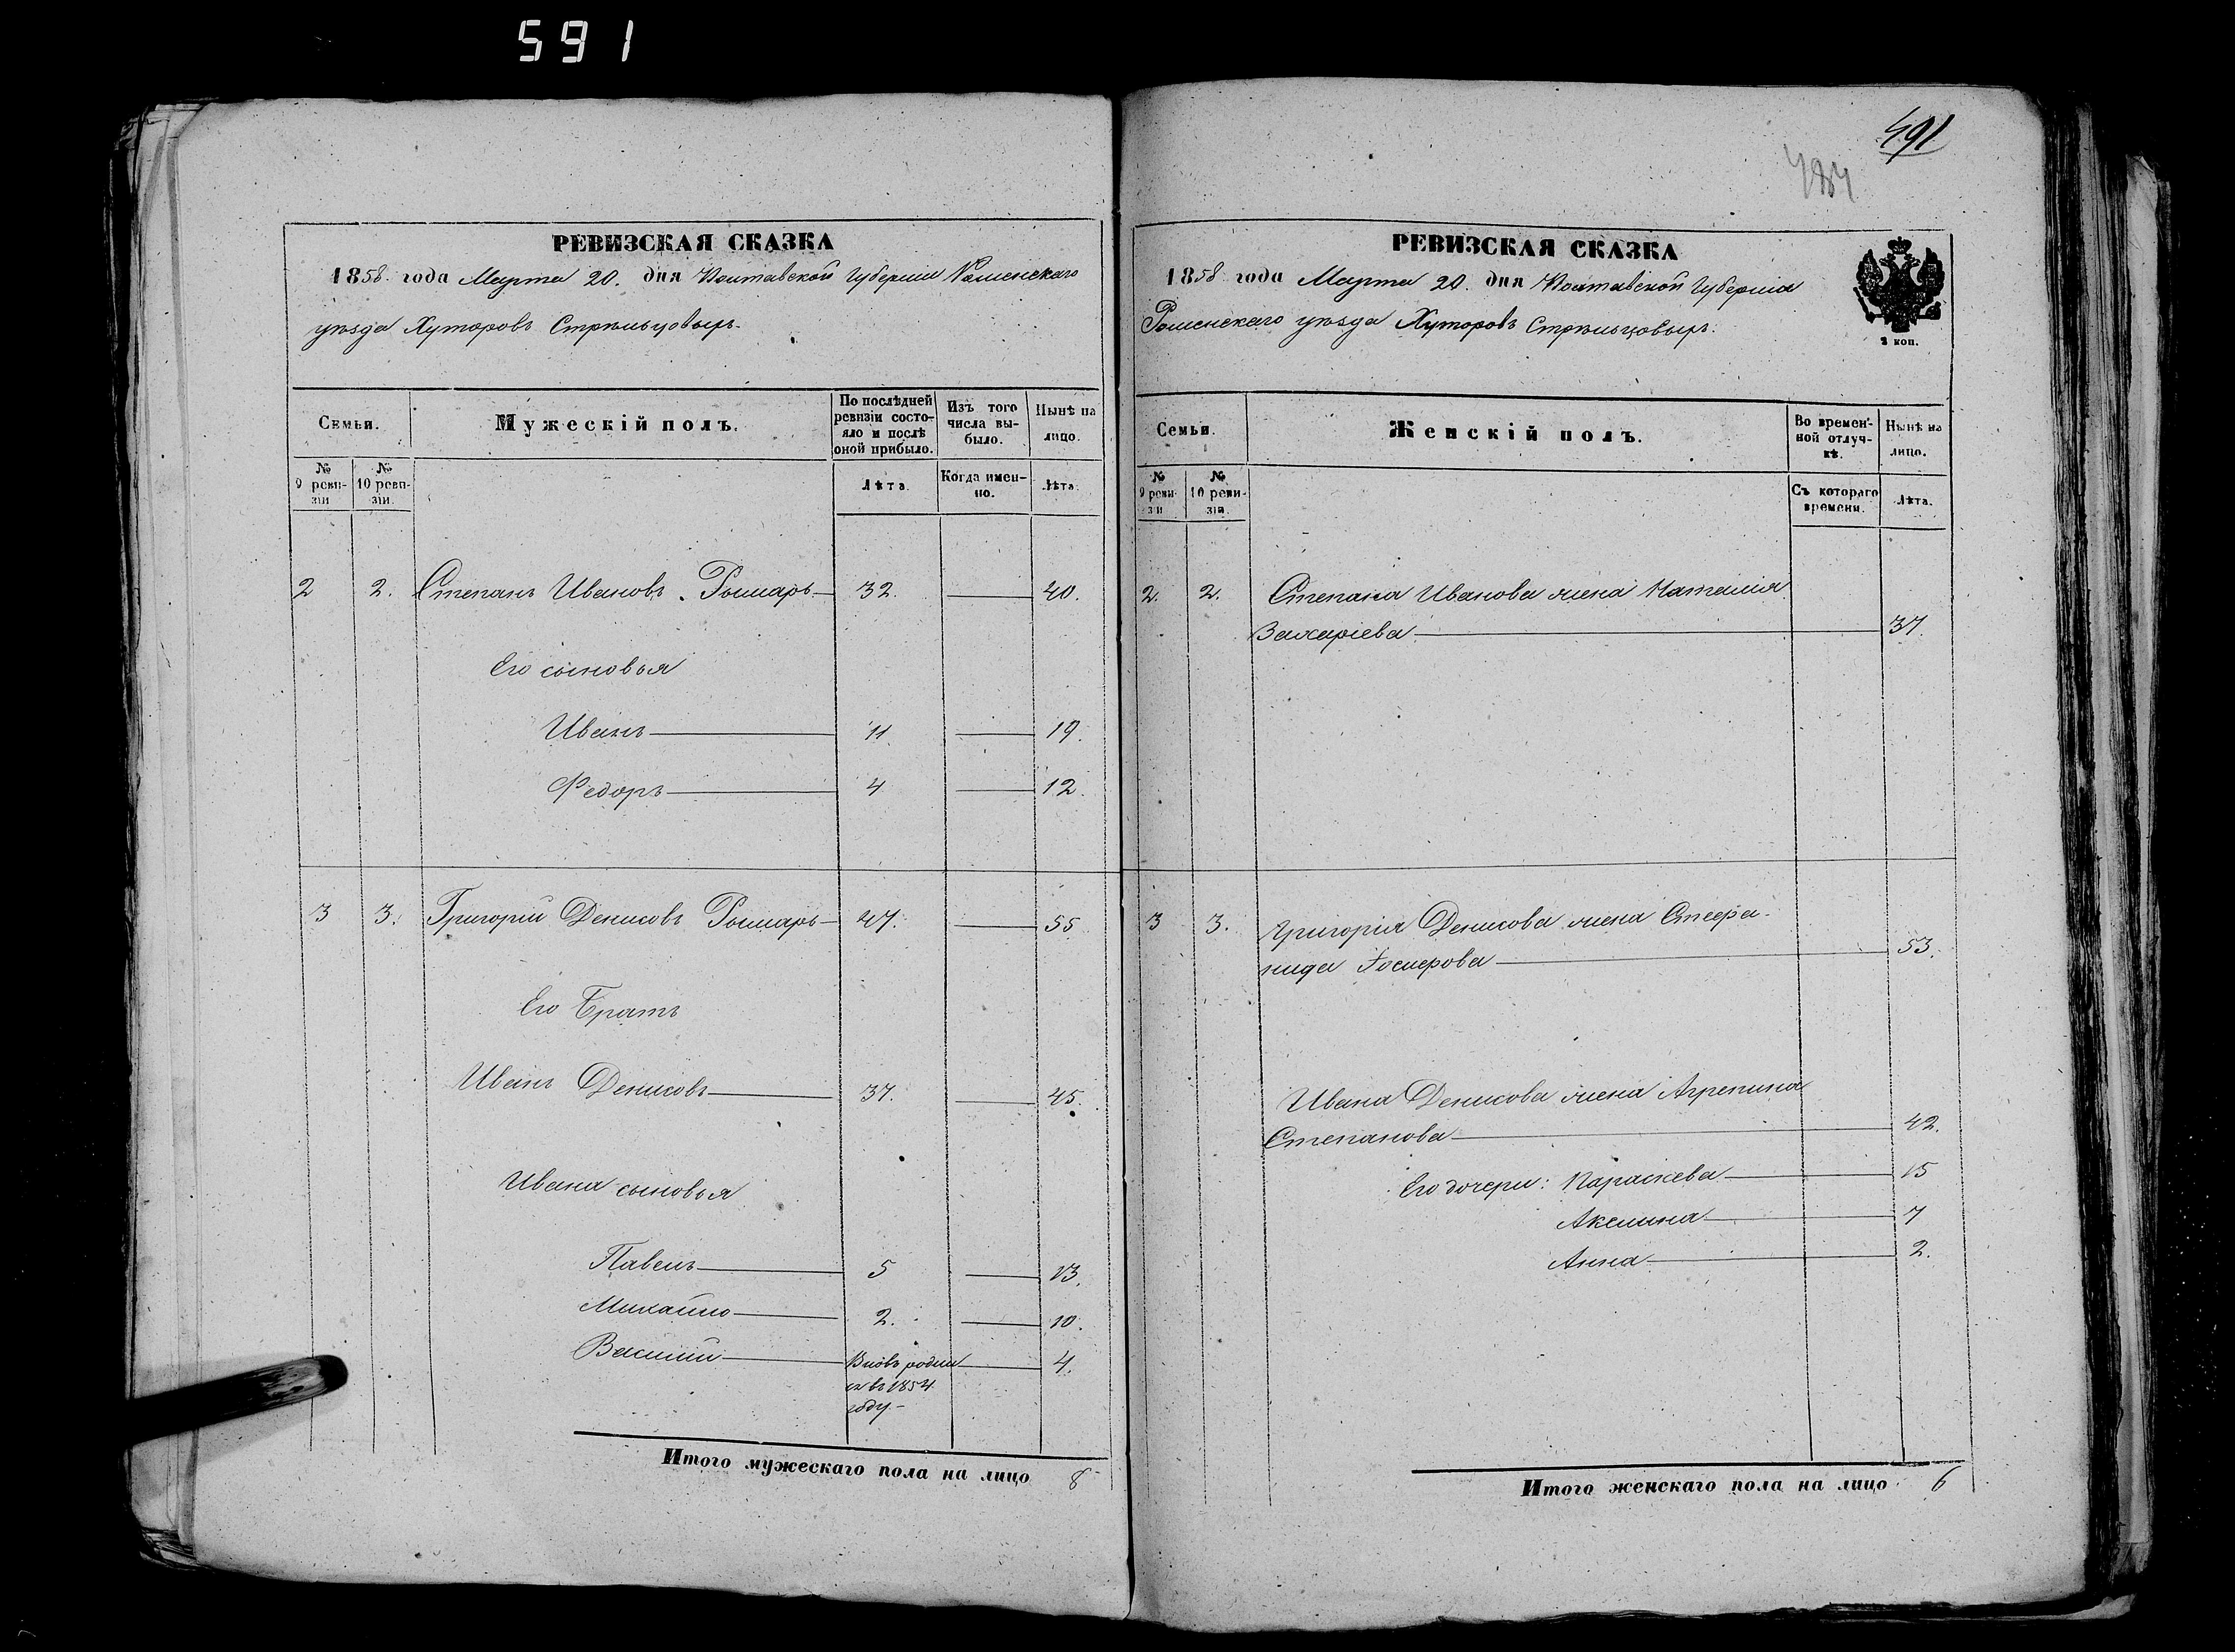 591
РЕВИЗСКАЯ СКАЗКА
1858 года Марта 20. дня Полтавской Губерніи Роменскаго
уѣзда Хуторовъ Стрѣльцовыхъ.
Семьи.
Мужескій полъ.
По послѣдней ревизіи состояло и послѣ оной прибыло.
Изъ того числа выбыло.
Нынѣ на лицо.
№ 9 ревизіи
№ 10 ревизіи.
Лѣта.
Когда именно.
Лѣта.
2 2. Степанъ Ивановъ Рымарь 32. 40.
Его сыновья
Иванъ 11. 19.
Федоръ 4 12.
3 3. Григорій Денисовъ Рымарь 47. 55
Его Братъ
Иванъ Денисовъ 37. 45.
Ивана сыновья
Павелъ 5 13.
Михайло 2. 10.
Василій Вновь родил 4.
ся въ 1854
году.
Итого мужескаго пола на лицо 8
491
484
РЕВИЗСКАЯ СКАЗКА
1858 года Марта 20. дня Полтавской Губерніи
Роменскаго уѣзда Хуторовъ Стрѣльцовыхъ.
2 коп.
Семьи.
Женскій полъ.
Во временной отлучкѣ.
Нынѣ на лицо.
№ 9 ревизіи
№ 10 ревизіи.
Съ котораго времени.
Лѣта.
2. 2. Степана Иванова жена Наталія
Захаріева 37.
3 3. Григорія Денисова жена Стефа-
нида 53.
Ивана Денисова жена Агрепина
Степанова 42.
Его дочери: Параскева 15
Акилина 7
Анна 2.
Итого женскаго пола на лицо 6